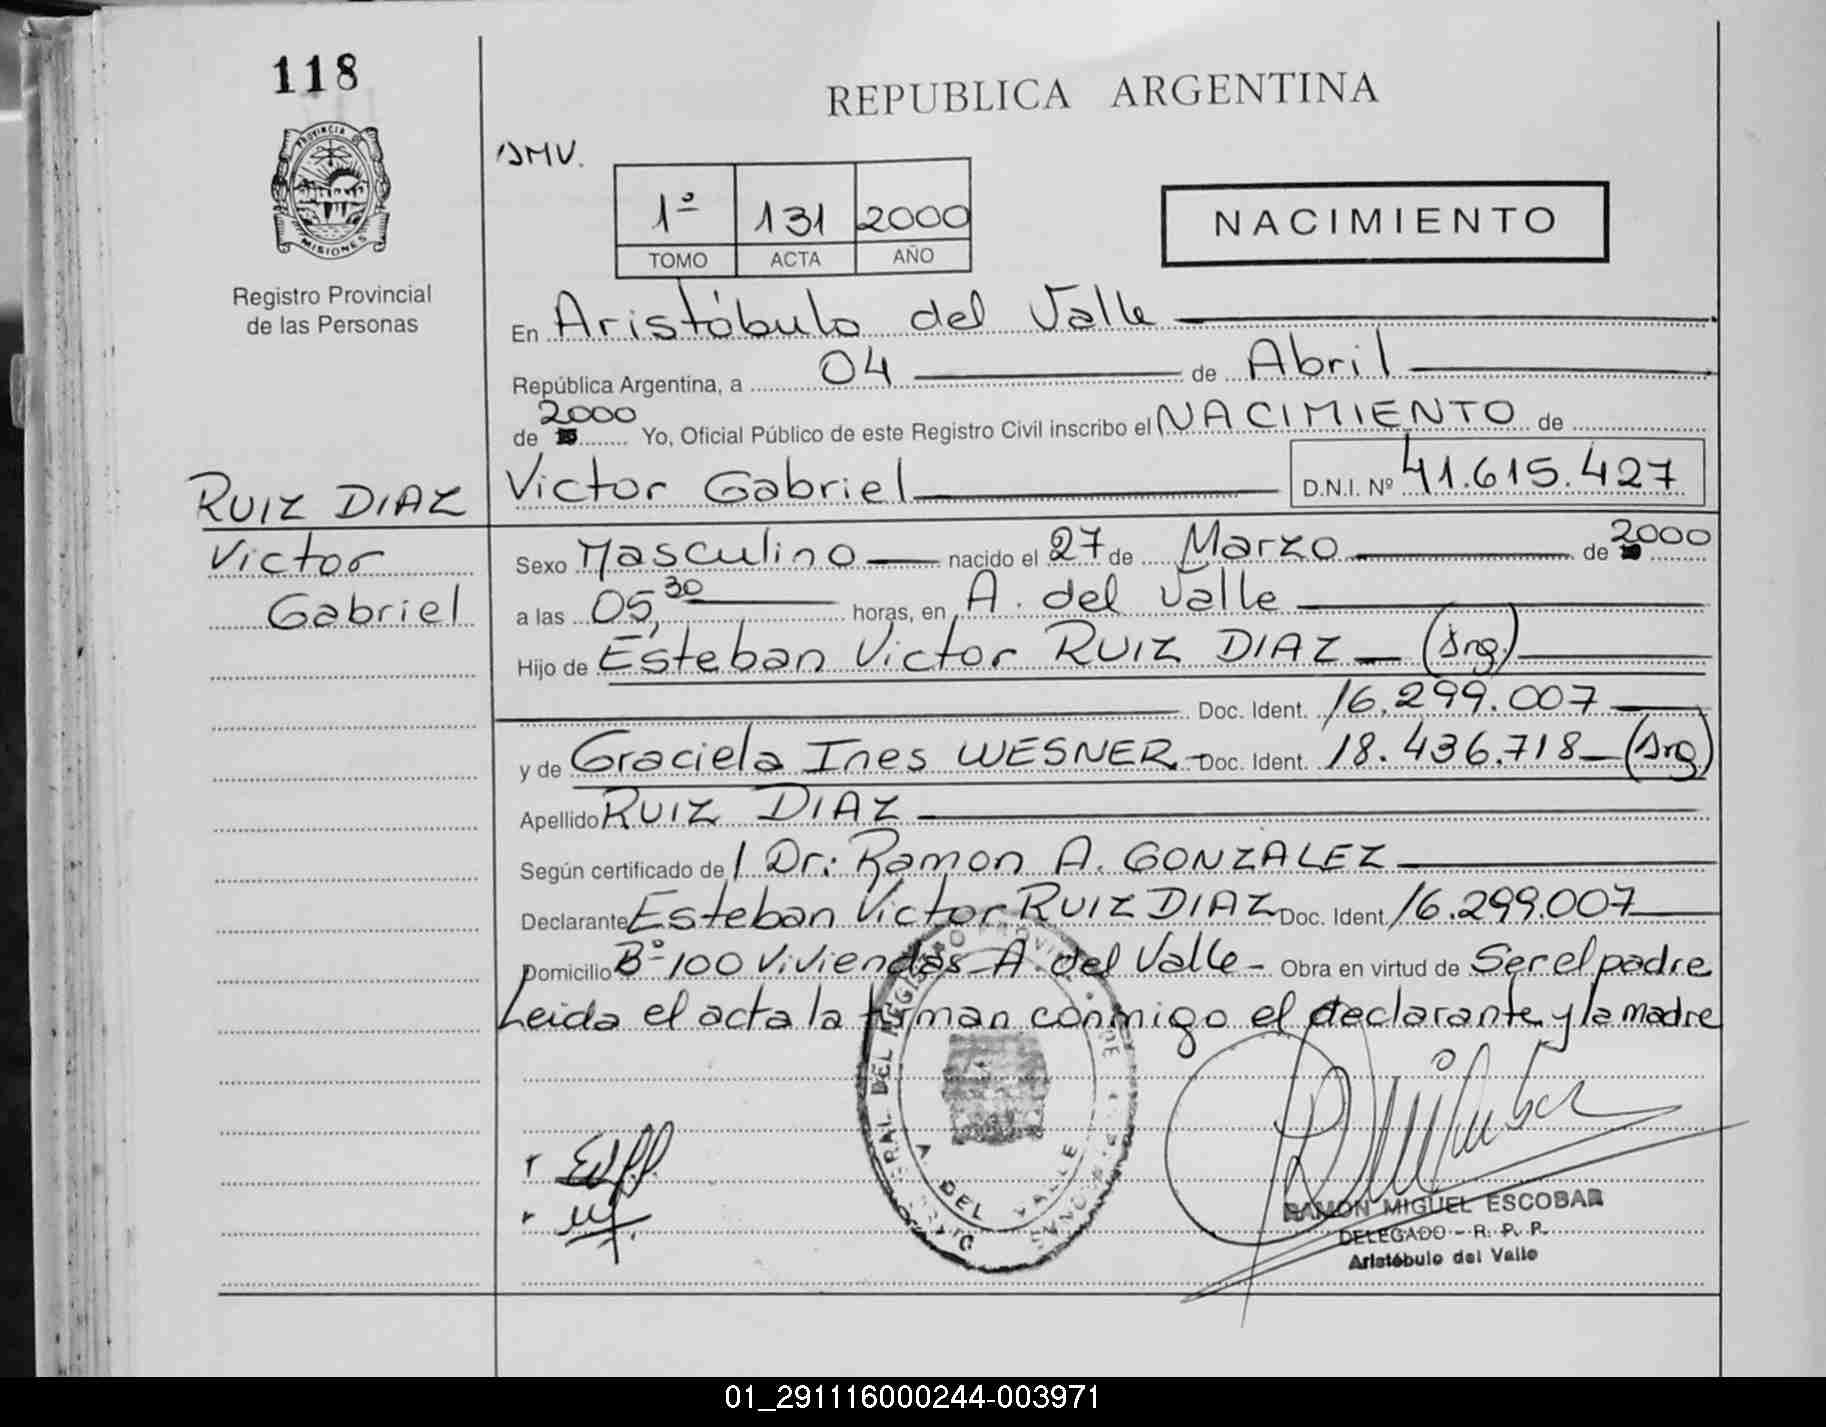 118
REPUBLICA ARGENTINA
PROVINCIA DE
MISIONES
Registro Provincial
de las Personas
1º 131 2000
TOMO ACTA AÑO
NACIMIENTO
En Aristóbulo del Valle
República Argentina, a 04 de Abril
de 2000 Yo, Oficial Público de este Registro Civil inscribo el NACIMIENTO de
RUIZ DIAZ
Victor
Gabriel
Victor Gabriel D.N.I. Nº 41.615.427
Sexo Masculino nacido el 27 de Marzo de 2000
a las 05,30 horas, en A. del Valle
Hijo de Esteban Victor RUIZ DIAZ (Arg.)
Doc. Ident. 16.299.007
y de Graciela Ines WESNER Doc. Ident. 18.436.718 (Arg)
Apellido RUIZ DIAZ
Según certificado de / Dr: Ramon A. GONZALEZ
Declarante Esteban Victor RUIZ DIAZ Doc. Ident. 16.299.007
Domicilio Bº 100 Viviendas A. del Valle - Obra en virtud de Ser el padre
Leida el acta la firman conmigo el declarante y la madre
A. DEL VALLE
RAMON MIGUEL ESCOBAR
DELEGADO - R. P. P.
Aristóbulo del Valle
01_291116000244-003971